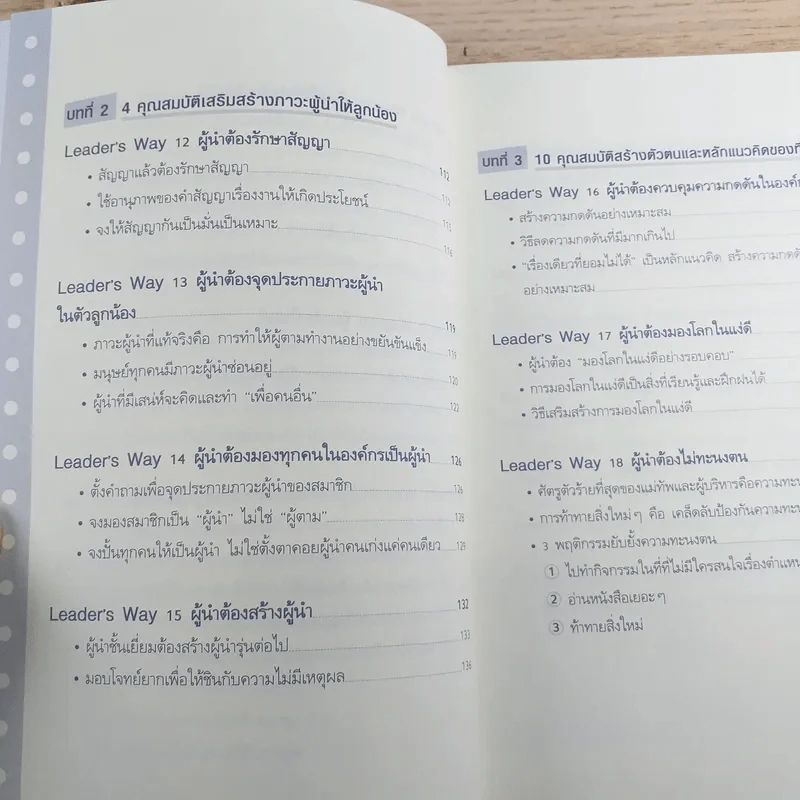 บทที่ 2 4 คุณสมบัติเสริมสร้างภาวะผู้นำให้ลูกน้อง
Leader's Way 12 ผู้นำต้องรักษาสัญญา 112
• สัญญาแล้วต้องรักษาสัญญา
• ใช้อานุภาพของคำสัญญาเรื่องงานให้เกิดประโยชน์
• จงให้สัญญากันเป็นมั่นเป็นเหมาะ 116
Leader's Way 13 ผู้นำต้องจุดประกายภาวะผู้นำ
ในตัวลูกน้อง 119
• ภาวะผู้นำที่แท้จริงคือ การทำให้ผู้ตามทำงานอย่างขยันขันแข็ง 119
• มนุษย์ทุกคนมีภาวะผู้นำซ่อนอยู่ 120
• ผู้นำที่มีเสน่ห์จะคิดและทำ “เพื่อคนอื่น” 122
Leader's Way 14 ผู้นำต้องมองทุกคนในองค์กรเป็นผู้นำ 126
• ตั้งคำถามเพื่อจุดประกายภาวะผู้นำของสมาชิก 126
• จงมองสมาชิกเป็น “ผู้นำ” ไม่ใช่ “ผู้ตาม” 128
• จงปั้นทุกคนให้เป็นผู้นำ ไม่ใช่ตั้งตาคอยผู้นำคนเก่งแค่คนเดียว 129
Leader's Way 15 ผู้นำต้องสร้างผู้นำ 132
• ผู้นำชั้นเยี่ยมต้องสร้างผู้นำรุ่นต่อไป 133
• มอบโจทย์ยากเพื่อให้ชินกับความไม่มีเหตุผล 136
บทที่ 3 10 คุณสมบัติสร้างตัวตนและหลักแนวคิดของ
Leader's Way 16 ผู้นำต้องควบคุมความกดดันใน
• สร้างความกดดันอย่างเหมาะสม
• วิธีลดความกดดันที่มีมากเกินไป
• “เรื่องเดียวที่ยอมไม่ได้” เป็นหลักแนวคิด สร้างความ
อย่างเหมาะสม
Leader's Way 17 ผู้นำต้องมองโลกในแง่ดี
• ผู้นำต้อง “มองโลกในแง่ดีอย่างรอบคอบ”
• การมองโลกในแง่ดีเป็นสิ่งที่เรียนรู้และฝึกฝนได้
• วิธีเสริมสร้างการมองโลกในแง่ดี
Leader's Way 18 ผู้นำต้องไม่ทะนงตน
• ศัตรูตัวร้ายที่สุดของแม่ทัพและผู้บริหารคือความ
• การท้าทายสิ่งใหม่ๆ คือ เคล็ดลับป้องกันความ
• 3 พฤติกรรมยับยั้งความทะนงตน
① ไปทำกิจกรรมในที่ที่ไม่มีใครสนใจเรื่อง
② อ่านหนังสือเยอะๆ
③ ท้าทายสิ่งใหม่